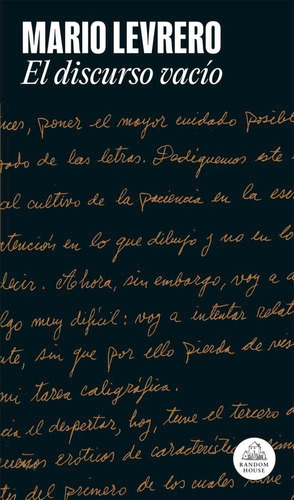 MARIO LEVRERO
El discurso vacío
nces, poner el mayor cuidado posibl
zado de las letras. Dediquemos este
al cultivo de la paciencia en la esc
atención en lo que dibujo y no en lo
decir. Ahora, sin embargo, voy a a
lgo muy difícil: voy a intentar relat
te, sin que por ello pierda de vis
mi tarea caligráfica.
a al despertar, hoy, tuve el tercero a
ueños eróticos de característic
ty del primero de los cuales tuve
RANDOM
HOUSE